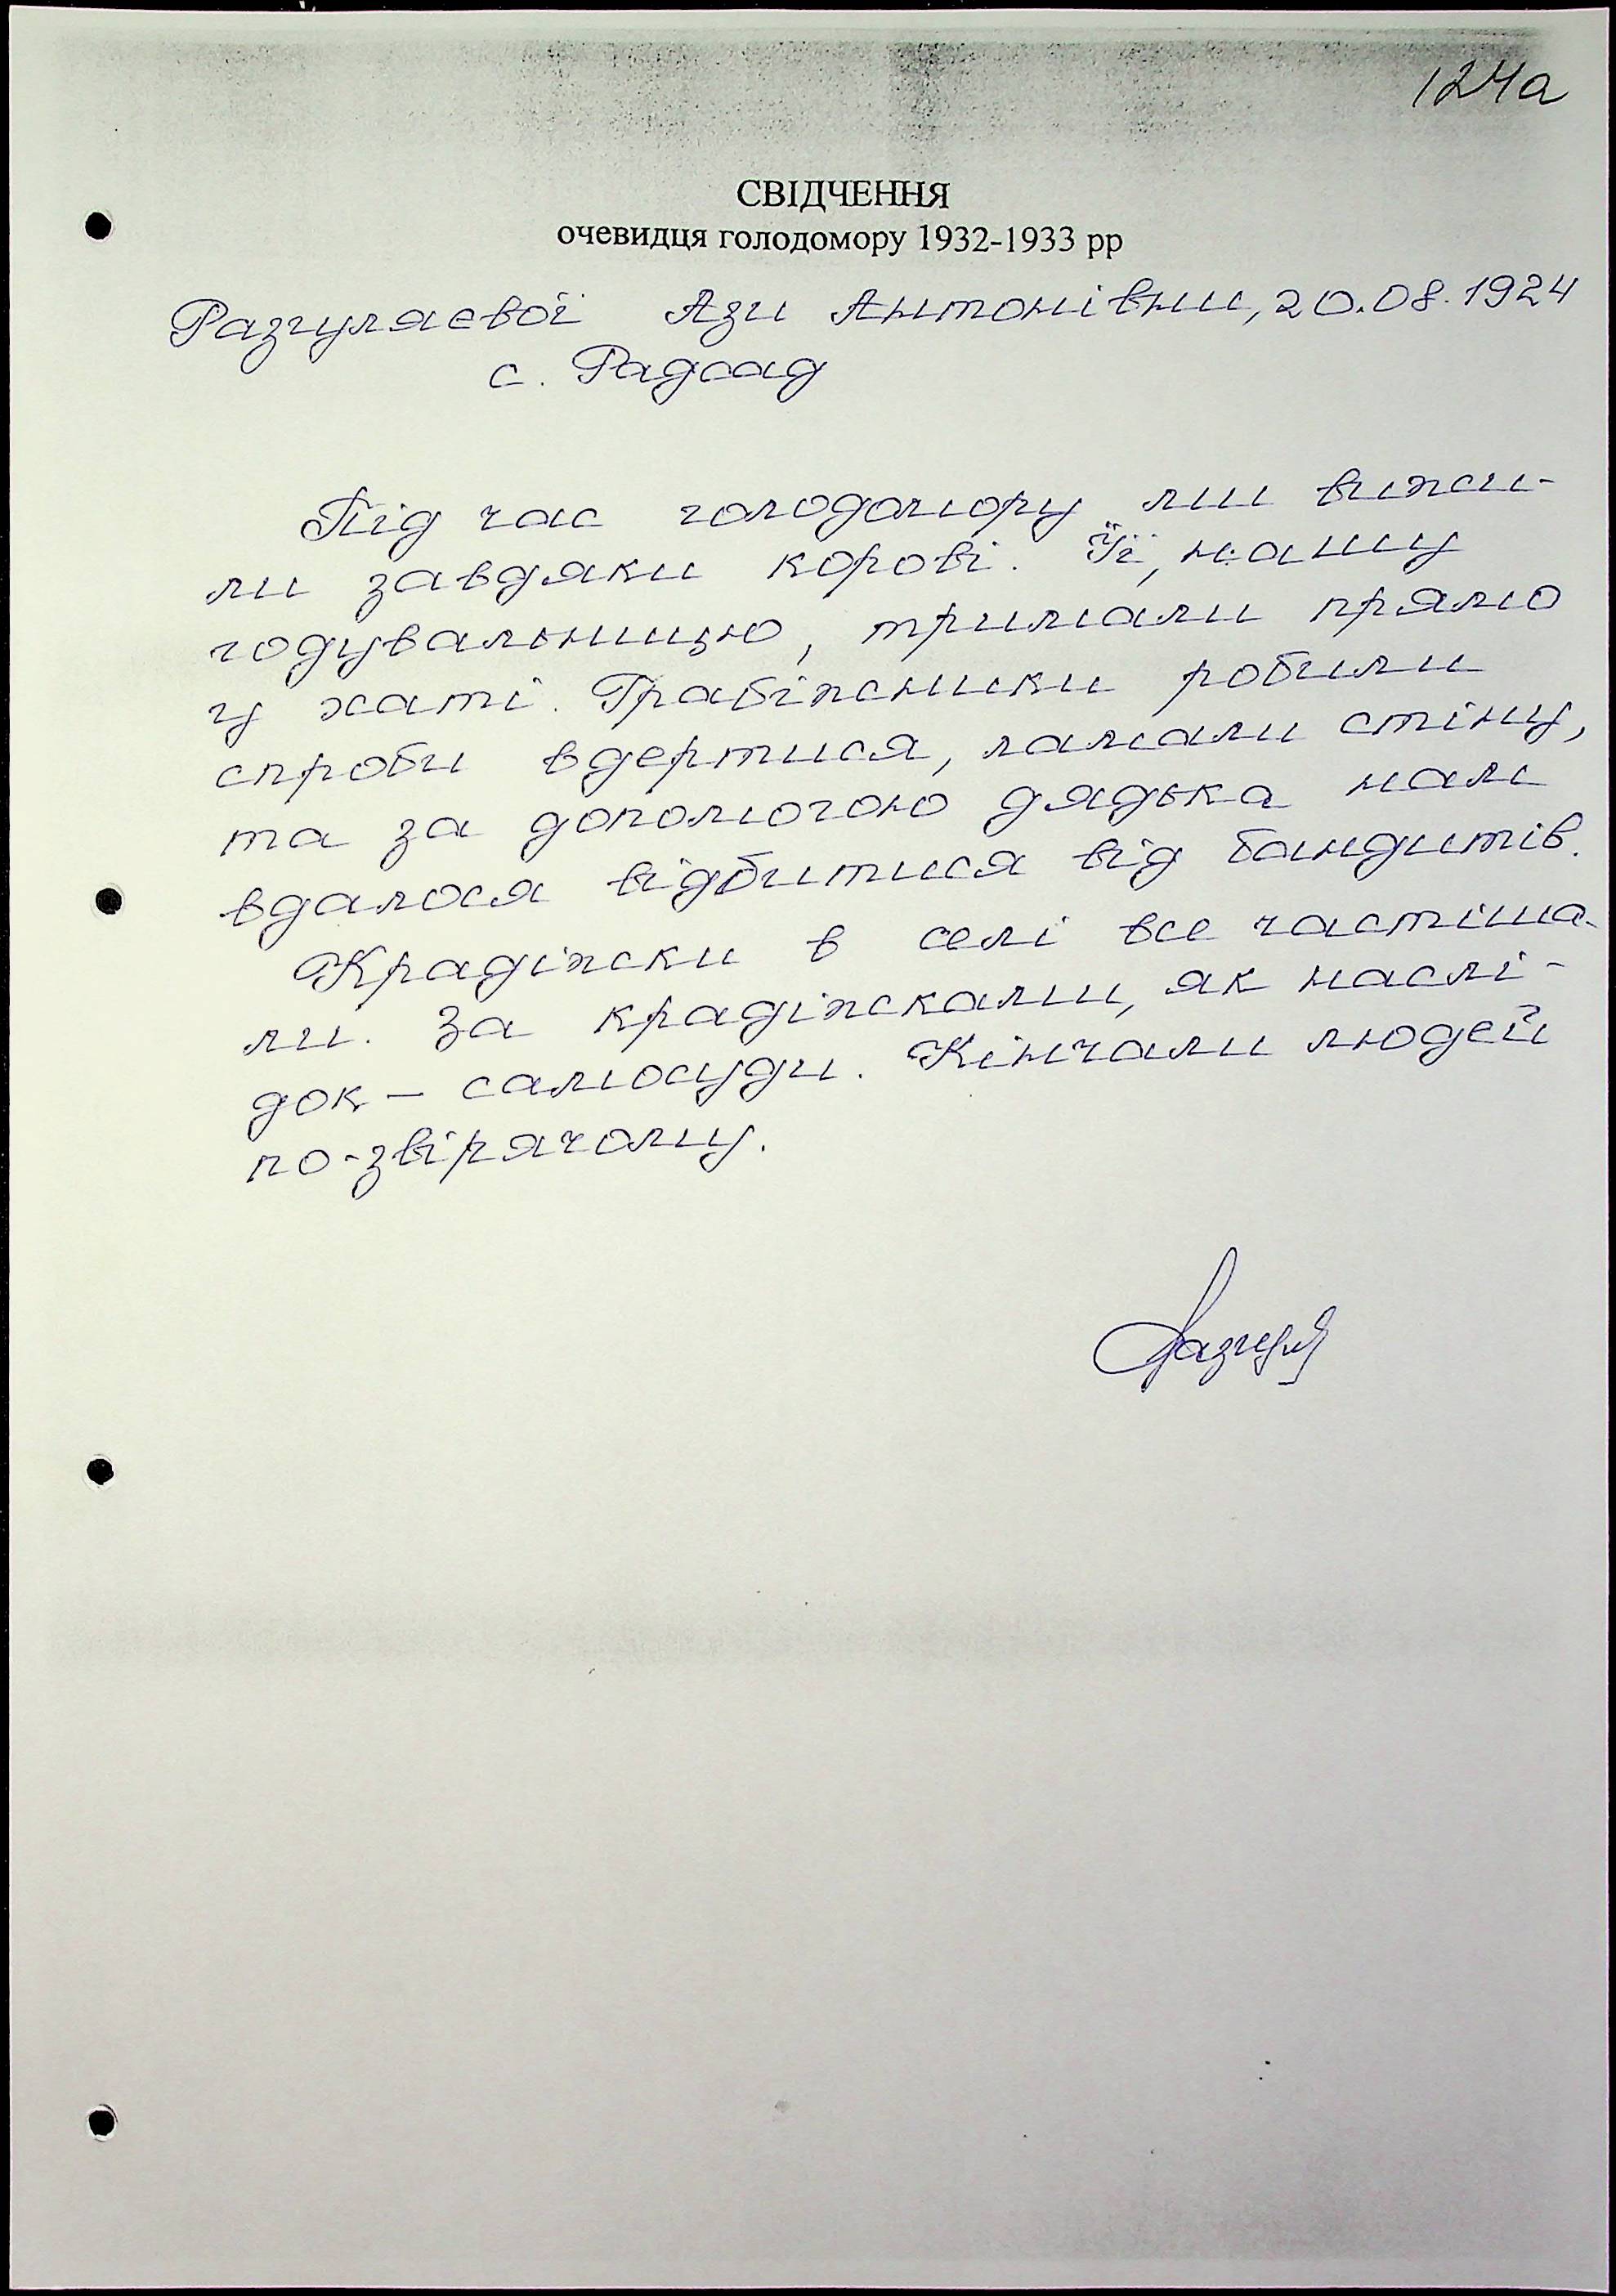 124а
СВІДЧЕННЯ
очевидця голодомору 1932-1933 рр
Разгуляєвої Ази Антонівни, 20.08.1924
с. Радсад
Під час голодомору ми вижи-
ли завдяки корові. Її, нашу
годувальницю, тримали прямо
у хаті. Грабіжники робили
спроби вдертися, ламали стіну,
та за допомогою дядька нам
вдалося відбитися від бандитів.
Крадіжки в селі все частіша-
ли. За крадіжками, як наслі-
док – самосуди. Кінчали людей
по-звірячому.